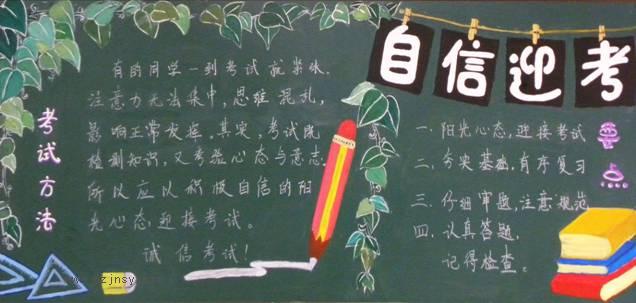 考试方法
有的同学一到考试就紧张,
注意力无法集中,思维混乱,
影响正常发挥,其实,考试既
检测知识,又考验心态与意志,
所以应以积极自信的阳
光心态,迎接考试。
诚信考试!
自信迎考
一.阳光心态,迎接考试
二.夯实基础,有序复习
三.仔细审题,注意规范
四.认真答题,
记得检查。
zjnsy